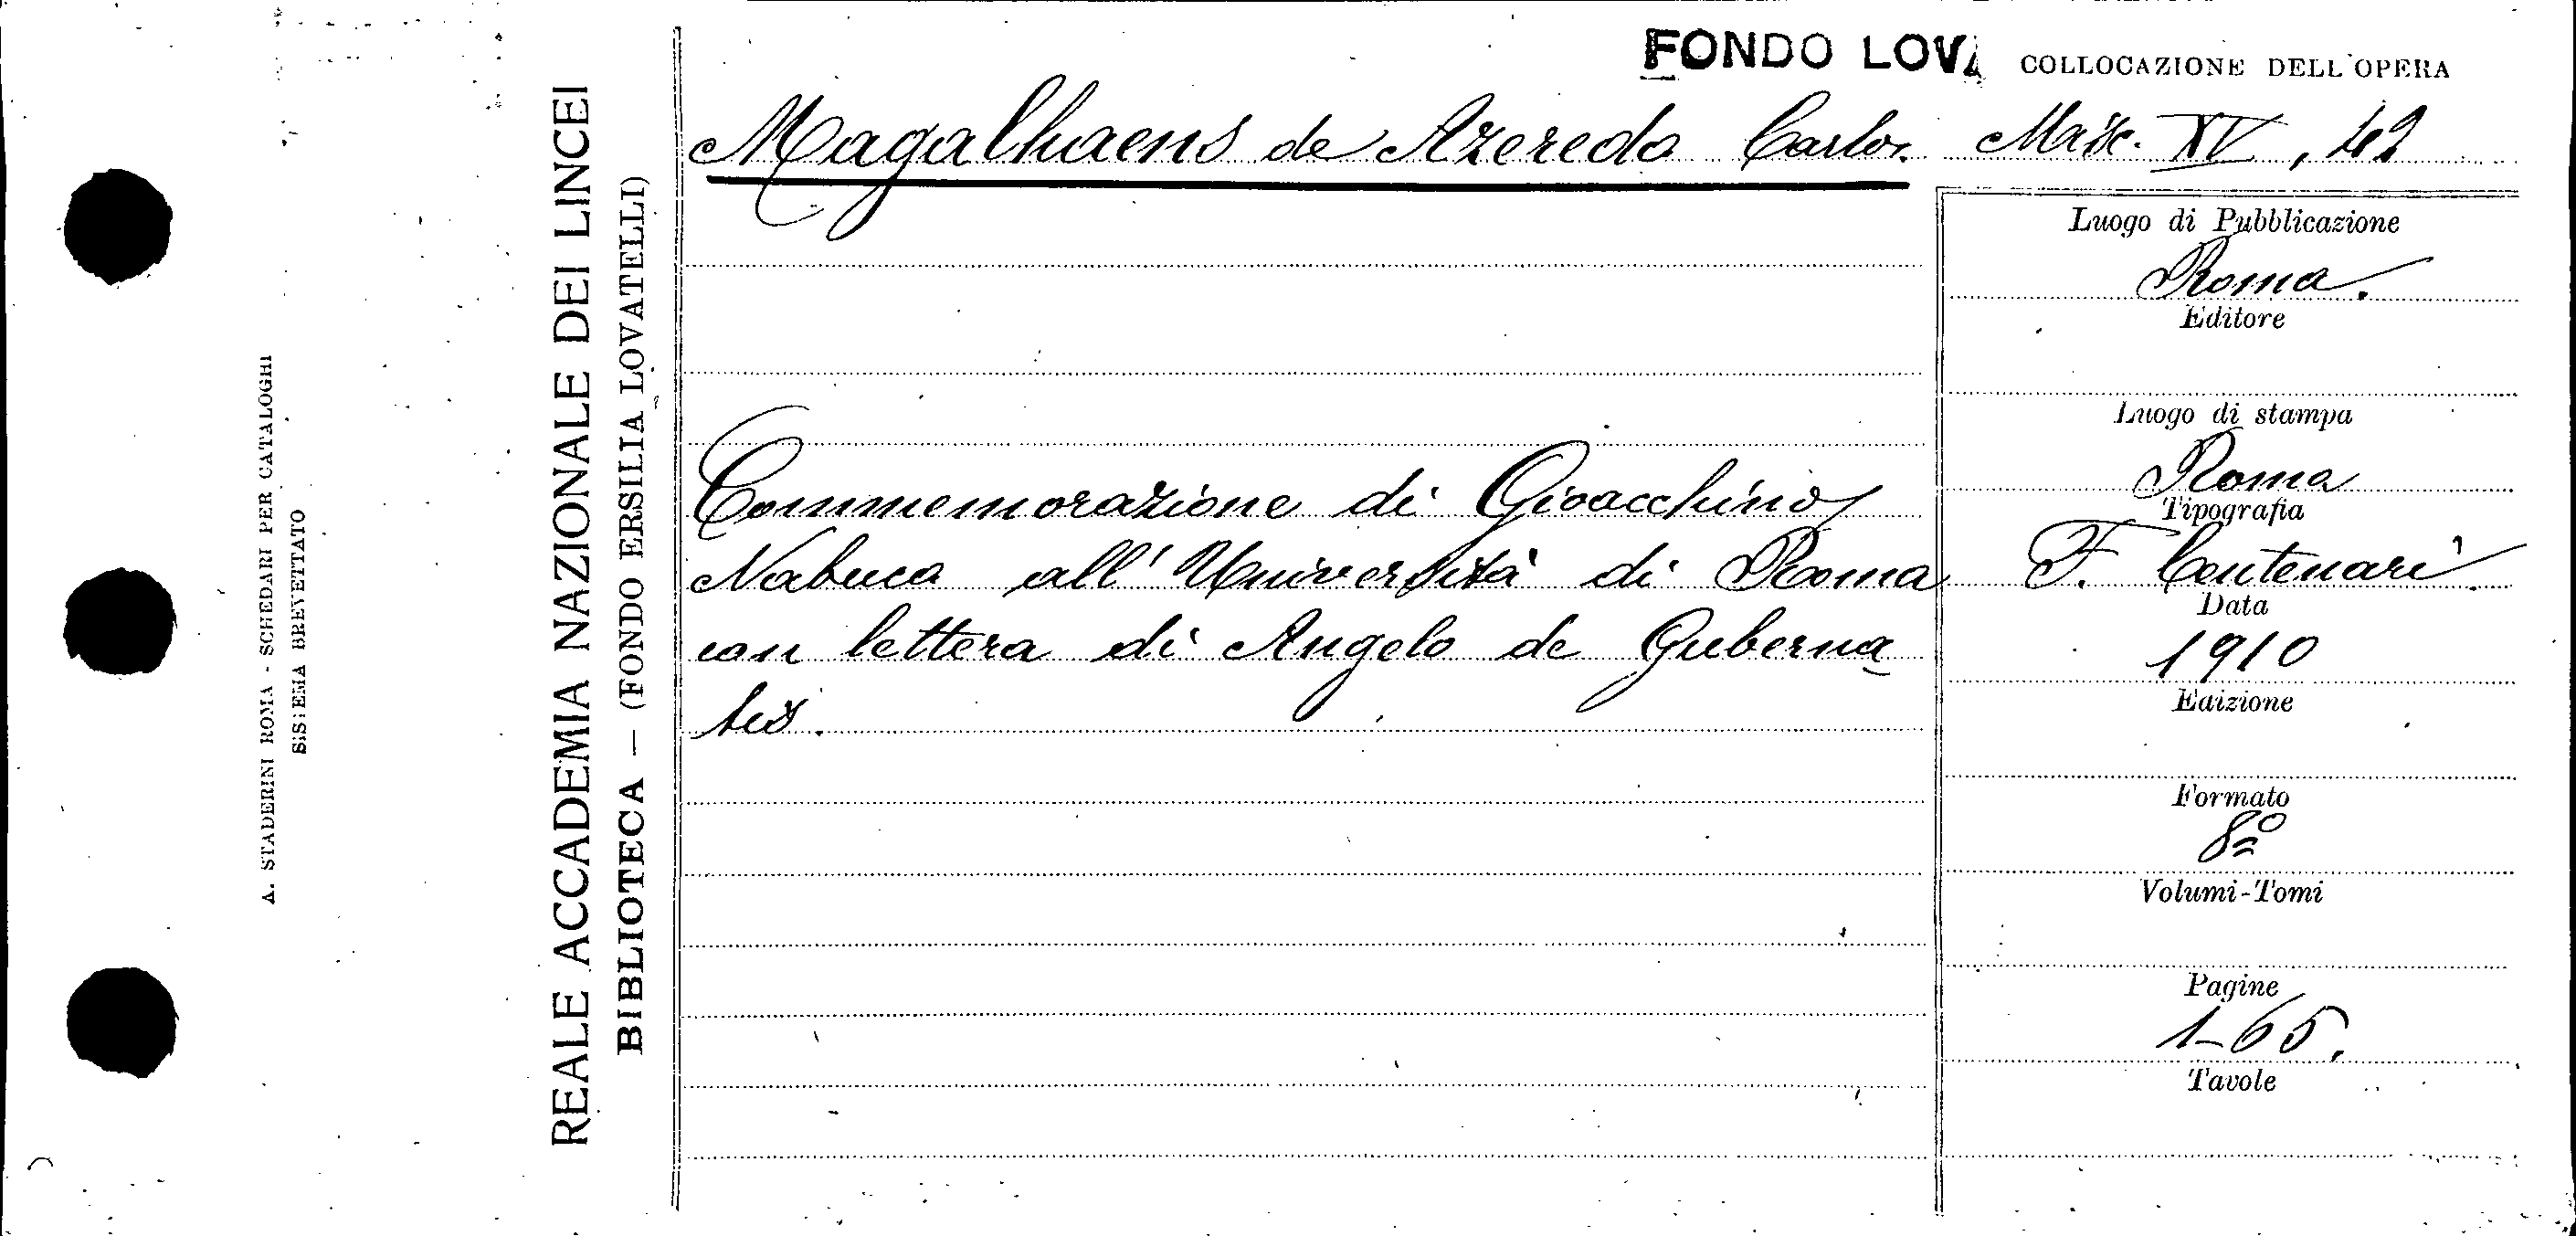 A. STADERINI ROMA - SCHEDARI PER CATALOGHI
SISTEMA BREVETTATO
REALE ACCADEMIA NAZIONALE DEI LINCEI
BIBLIOTECA — (FONDO ERSILIA LOVATELLI)
FONDO LOVA
COLLOCAZIONE DELL'OPERA
Magalhaens de Azeredo Carlos.
Misc. XV, 42
Commemorazione di Gioacchino
Nabuco all'Università di Roma
con lettera di Angelo de Guberna
tis.
Luogo di Pubblicazione
Roma.
Editore
Luogo di stampa
Roma
Tipografia
F. Centenari
Data
1910
Edizione
Formato
8º
Volumi-Tomi
Pagine
1-65.
Tavole